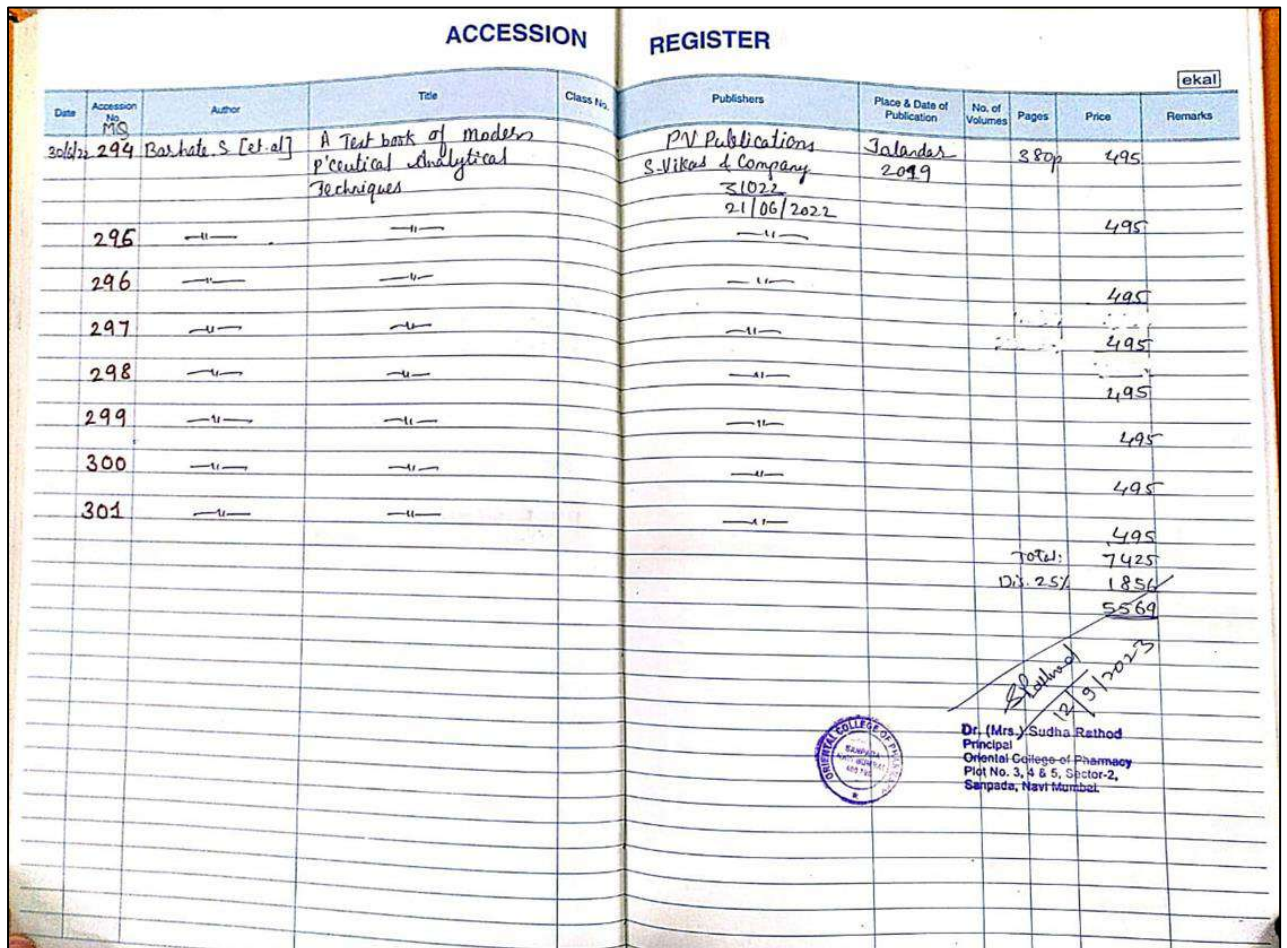 ACCESSION REGISTER
ekal
Date Accession No. Author Title Class No. Publishers Place & Date of Publication No. of Volumes Pages Price Remarks
MQ
30/6/22 294 Barhate. S [et.al] A Text book of Modern PV Publications Jalandar 380p 495
P'ceutical Analytical S. Vikas & Company 2019
Techniques 31022
21/06/2022
295 —〃— —〃— —〃— 495
296 —〃— —〃— —〃— 495
297 —〃— —〃— —〃— 495
298 —〃— —〃— —〃— 495
299 —〃— —〃— —〃— 495
300 —〃— —〃— —〃— 495
301 —〃— —〃— —〃— 495
Total: 7425
Dis. 25% 1856
5569
12/9/2023
Dr. (Mrs.) Sudha Rathod
Principal
Oriental College of Pharmacy
Plot No. 3, 4 & 5, Sector-2,
Sanpada, Navi Mumbai.
ORIENTAL COLLEGE OF PHARMACY
SANPADA
NAVI MUMBAI